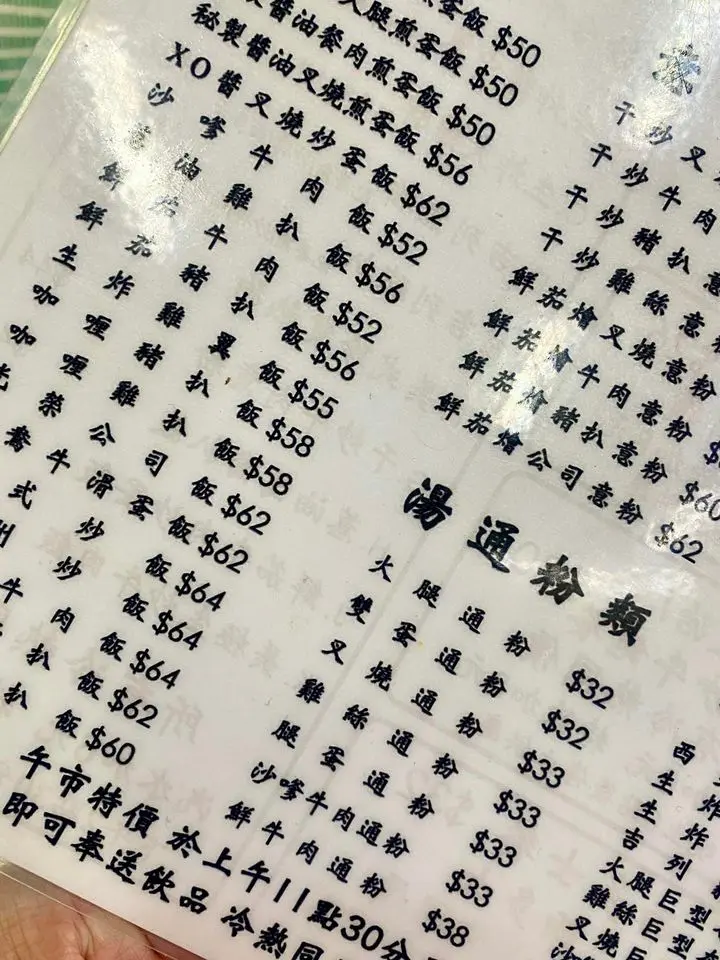 煎蛋飯 $50
腿煎蛋飯 $50
製醬油餐肉煎蛋飯 $50
秘製醬油叉燒煎蛋飯 $56
XO醬叉燒炒蛋飯 $62
沙嗲牛肉飯 $52
油雞扒飯 $56
鮮茄牛肉飯 $52
鮮茄豬扒飯 $56
生炸雞翼飯 $55
咖喱豬扒飯 $58
咖喱雞扒飯 $58
菜公司飯 $62
牛滑蛋飯 $62
式炒飯 $64
州炒飯 $64
牛肉飯 $64
扒飯 $62
扒飯 $60
午市特價 於上午11點30分
即可奉送飲品 冷熱同
干炒叉
干炒牛肉
干炒豬扒意
干炒雞絲意
鮮茄燴叉燒意粉
鮮茄燴牛肉意粉
鮮茄燴豬扒意粉 $60
鮮茄燴公司意粉 $62
湯通粉類
火腿通粉 $32
雙蛋通粉 $32
叉燒通粉 $33
雞絲通粉 $33
腿蛋通粉 $33
沙嗲牛肉通粉 $33
鮮牛肉通粉 $38
西
生炸
生炸
吉列
火腿巨型
雞絲巨型
叉燒巨